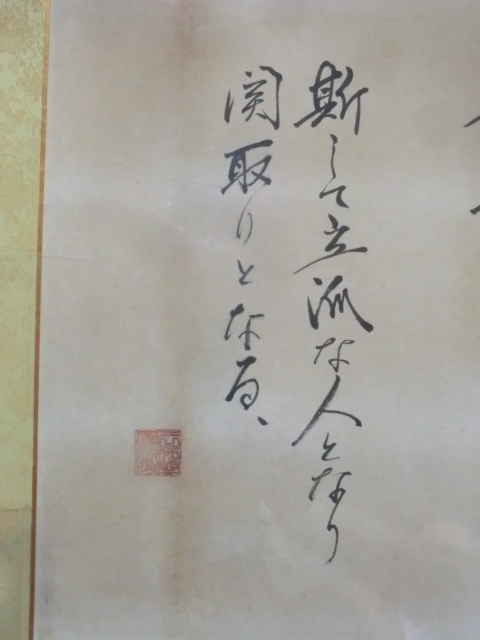 斯して立派な人となり
関取りとなる、